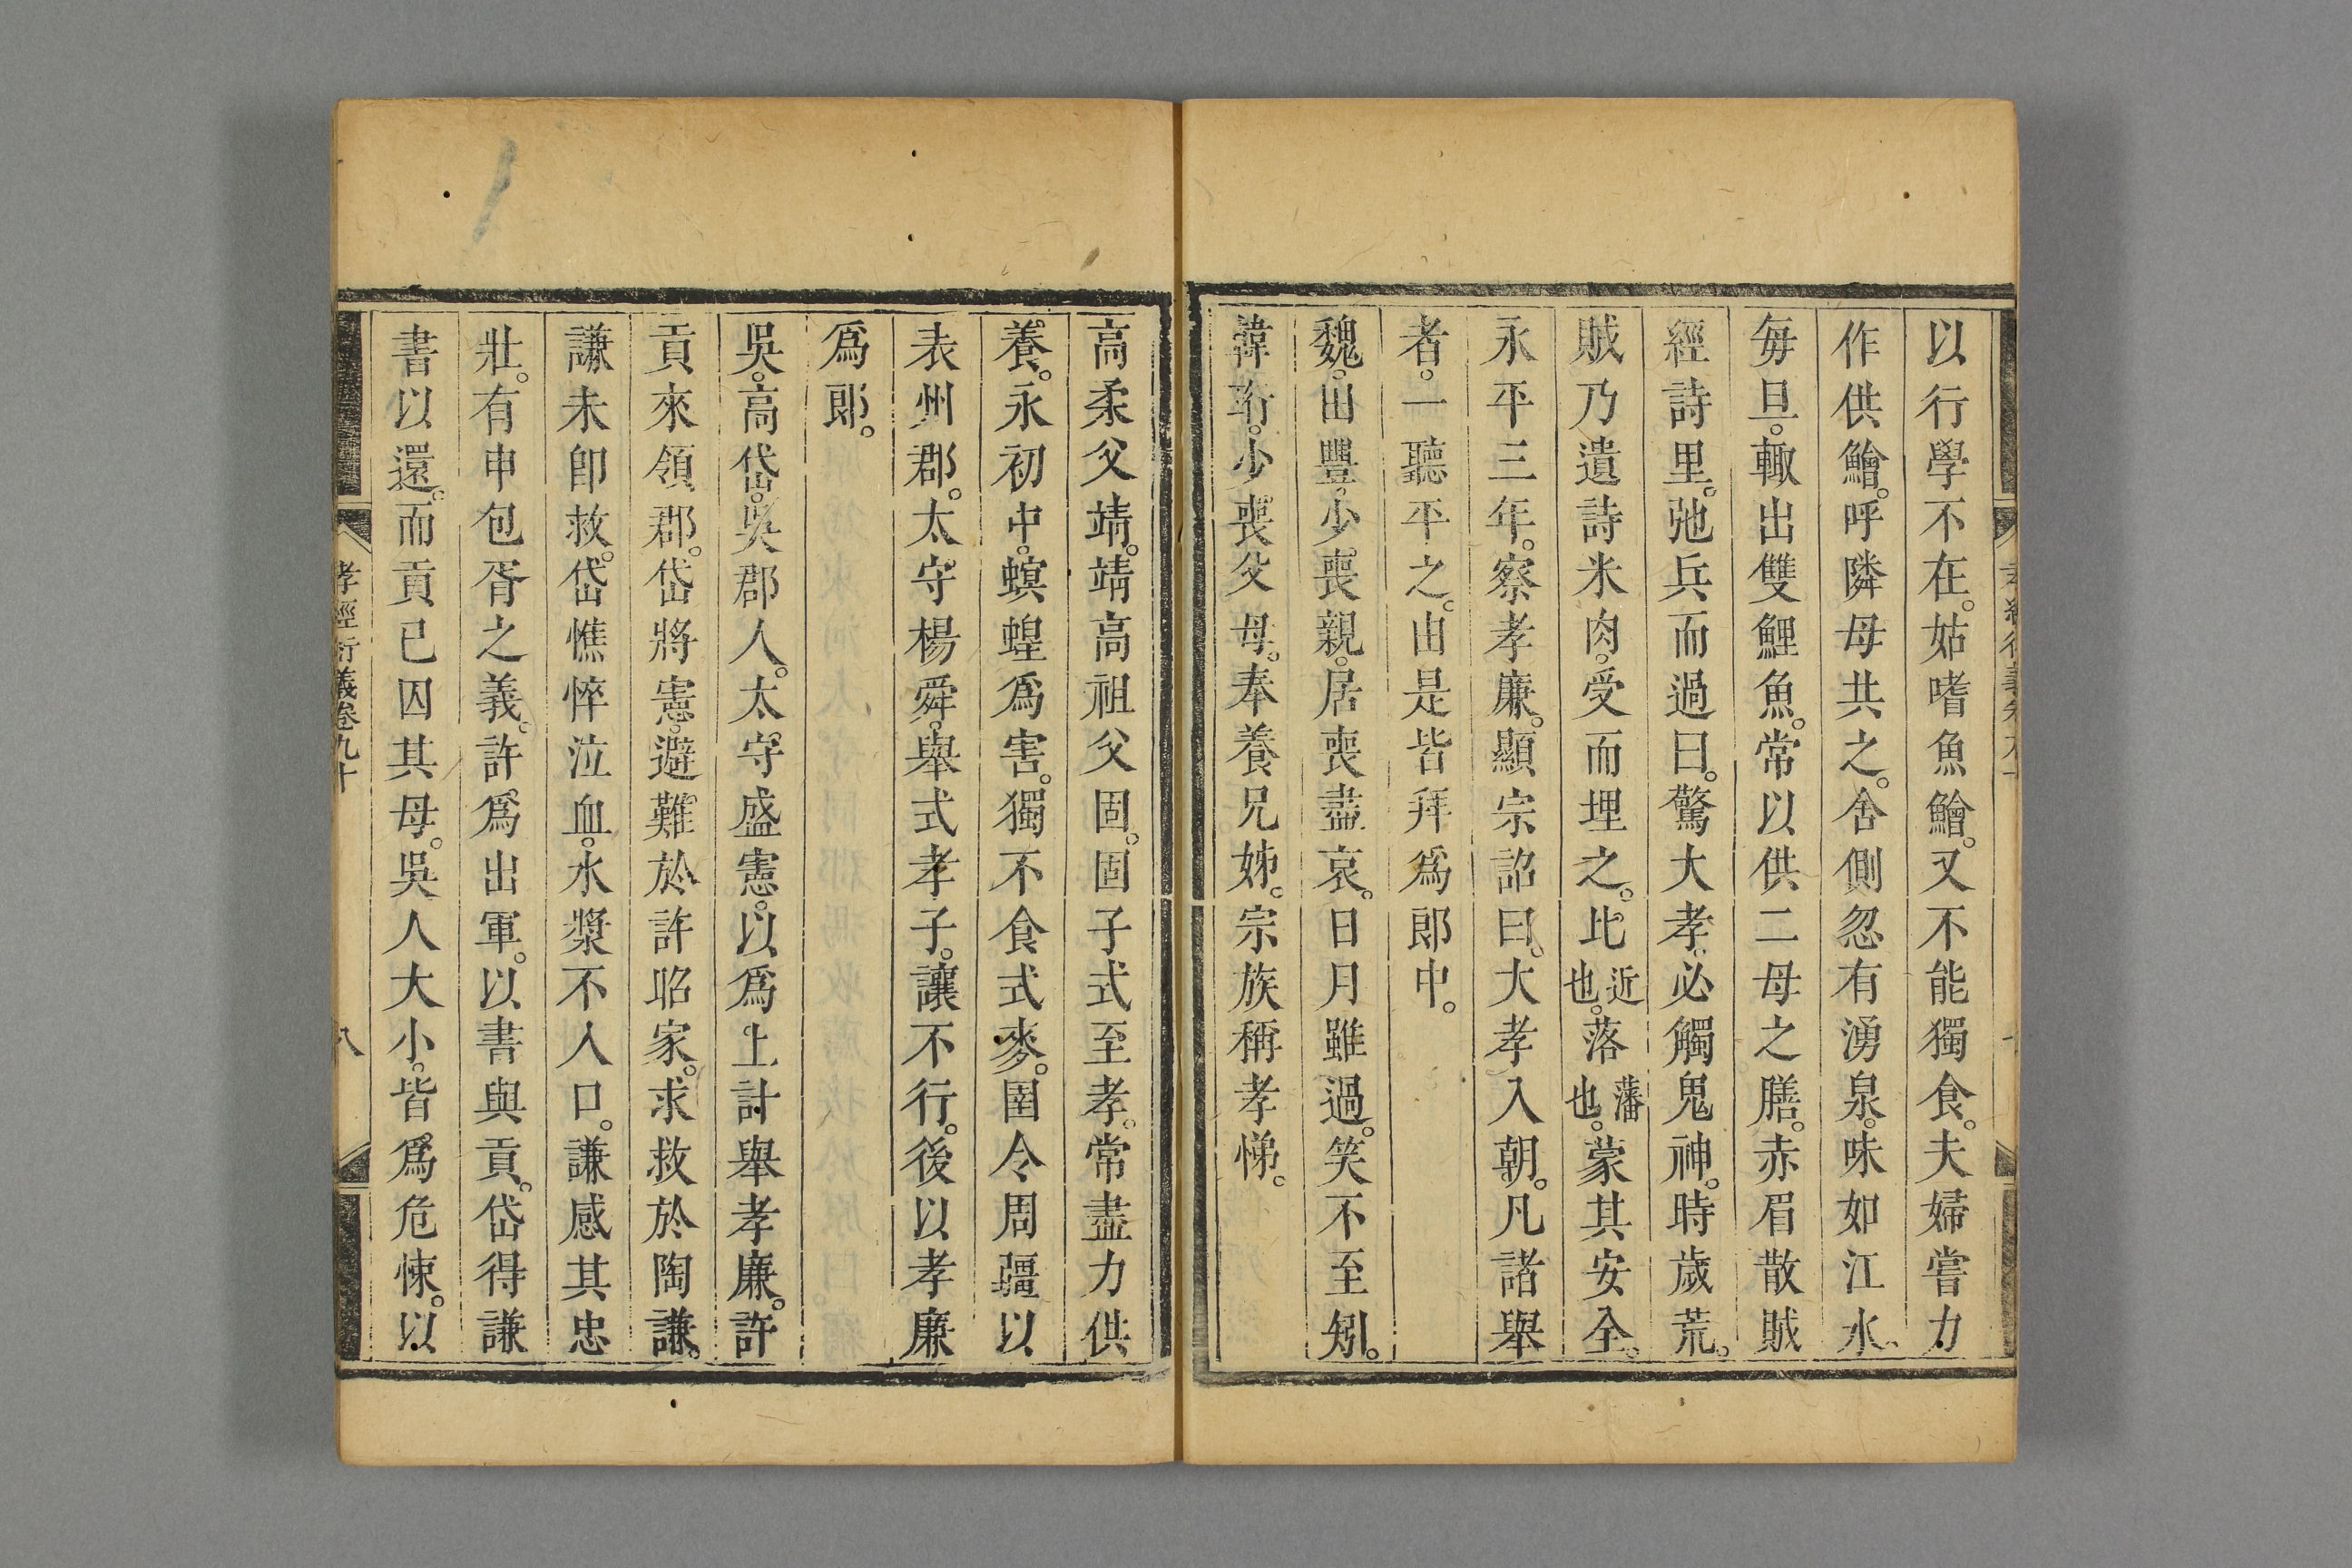 以行學不在。姑嗜魚鱠。又不能獨食。夫婦嘗力
作供鱠。呼隣母共之。舍側忽有湧泉。味如江水、
每旦。輙出雙鯉魚。常以供二母之膳。赤眉散賊
經詩里。弛兵而過曰。驚大孝。必觸鬼神。時歲荒。
賊乃遺詩米肉。受而埋之。比近也。落藩也。蒙其安全。
永平三年。察孝廉。顯宗詔曰。大孝入朝。凡諸舉
者。一聽平之。由是皆拜爲郎中。
魏。田豐。少喪親。居喪盡哀。日月雖過。笑不至矧。
韓珩。少喪父母。奉養兄姊。宗族稱孝悌。
高柔父靖。靖高祖父固。固子式至孝。常盡力供
養。永初中。螟蝗爲害。獨不食式麥。圉令周彊以
表州郡。太守楊舜。舉式孝子。讓不行。後以孝廉
爲郎。
吳。高岱。吳郡人。太守盛憲。以爲上計舉孝廉。許
貢來領郡。岱將憲。避難於許昭家。求救於陶謙。
謙未卽救。岱憔悴泣血。水漿不入口。謙感其忠
壯。有申包胥之義。許爲出軍。以書與貢。岱得謙
書以還。而貢已囚其母。吳人大小。皆爲危悚。以
孝經衍義卷九十 八